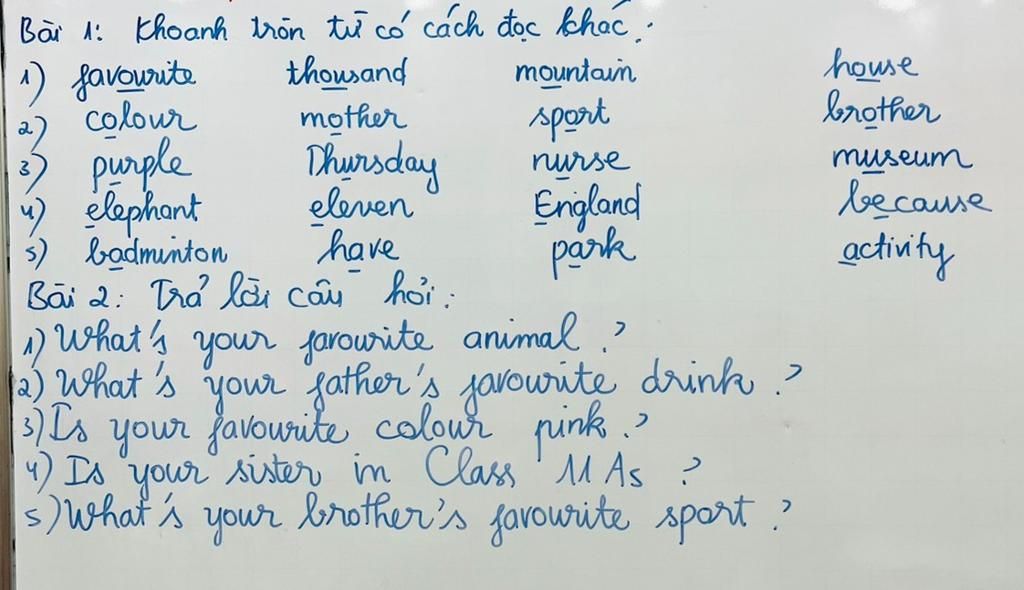 Bài 1: Khoanh tròn từ có cách đọc khác.
1) favourite thousand mountain house
2) colour mother sport brother
3) purple Thursday nurse museum
4) elephant eleven England because
5) badminton have park activity
Bài 2: Trả lời câu hỏi:
1) What's your favourite animal?
2) What's your father's favourite drink?
3) Is your favourite colour pink?
4) Is your sister in Class 11A5?
5) What's your brother's favourite sport?